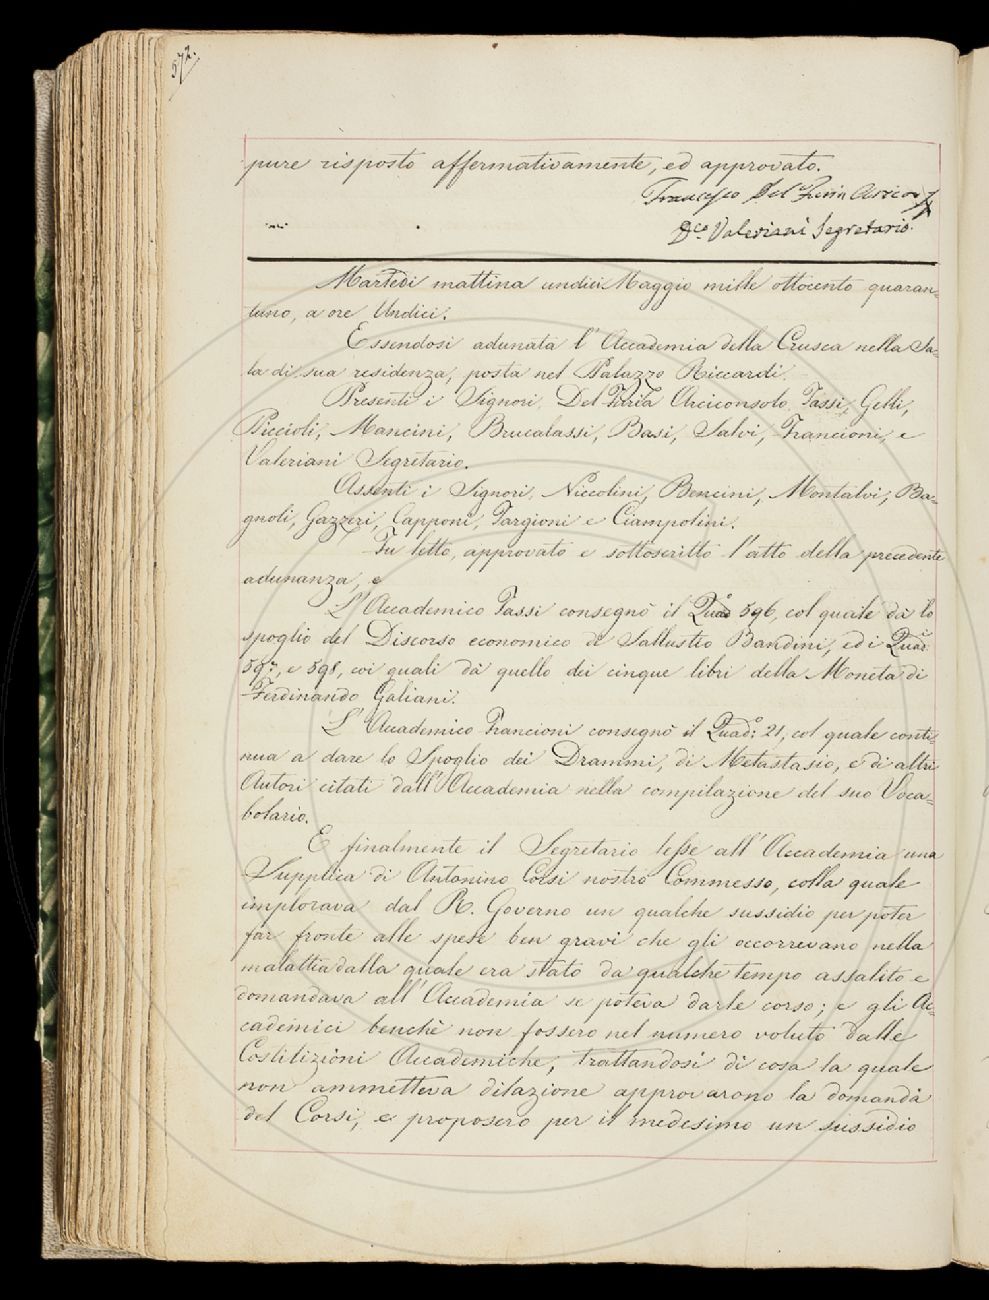 572.
pure risposto affermativamente, ed approvato.
Francesco Del Furia Arcicon
Dco. Valeriani Segretario.
Martedi mattina undici Maggio mille ottocento quaran=
tuno, a ore Undici.
Essendosi adunata l'Accademia della Crusca nella Sa=
la di sua residenza, posta nel Palazzo Riccardi.
Presenti i Signori. Del Furia Arciconsolo. Tassi, Gelli,
Piccioli, Mancini, Brucalassi, Basi, Salvi, Francioni, e
Valeriani Segretario.
Assenti i Signori, Niccolini, Bencini, Montalvi, Ba=
gnoli, Gazzeri, Capponi, Targioni e Ciampolini.
Fu letto, approvato e sottoscritto l'atto della precedente
adunanza, e
L'Accademico Tassi consegnò il Quad.o 596, col quale dà lo
spoglio del Discorso economico di Sallustio Bandini, ed i Quad.
597, e 598, coi quali dà quello dei cinque libri della Moneta di
Ferdinando Galiani.
L'Accademico Francioni consegnò il Quad.o 21, col quale conti=
nua a dare lo Spoglio dei Drammi, di Metastasio, e di altri
Autori citati dall'Accademia nella compilazione del suo Voca=
bolario.
E finalmente il Segretario lesse all'Accademia una
Supplica di Antonino Corsi nostro Commesso, colla quale
implorava dal R. Governo un qualche sussidio per poter
far fronte alle spese ben gravi che gli occorrevano nella
malattia dalla quale era stato da qualche tempo assalito e
domandava all'Accademia se poteva darle corso; e gli Ac=
cademici benchè non fossero nel numero voluto dalle
Costituzioni Accademiche, trattandosi di cosa la quale
non ammetteva dilazione approvarono la domanda
del Corsi, e proposero per il medesimo un sussidio